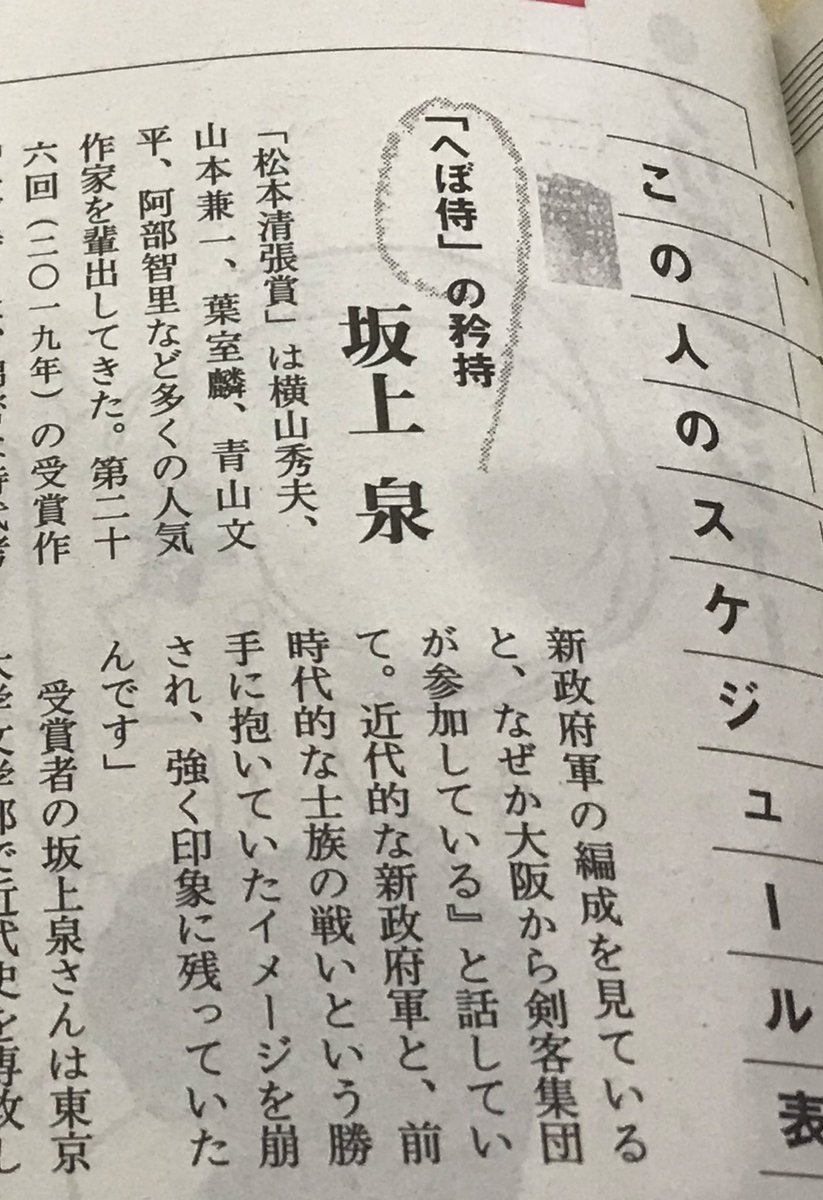 このの人のスケジュール表
「へぼ侍」の矜持
坂上 泉
「松本清張賞」は横山秀夫、
山本兼一、葉室麟、青山文
平、阿部智里など多くの人気
作家を輩出してきた。第二十
六回（二〇一九年）の受賞作
新政府軍の編成を見ている
と、なぜか大阪から剣客集団
が参加している』と話してい
て。近代的な新政府軍と、前
時代的な士族の戦いという勝
手に抱いていたイメージを崩
され、強く印象に残っていた
んです」
受賞者の坂上泉さんは東京
大学文学部で近代史を専攻し